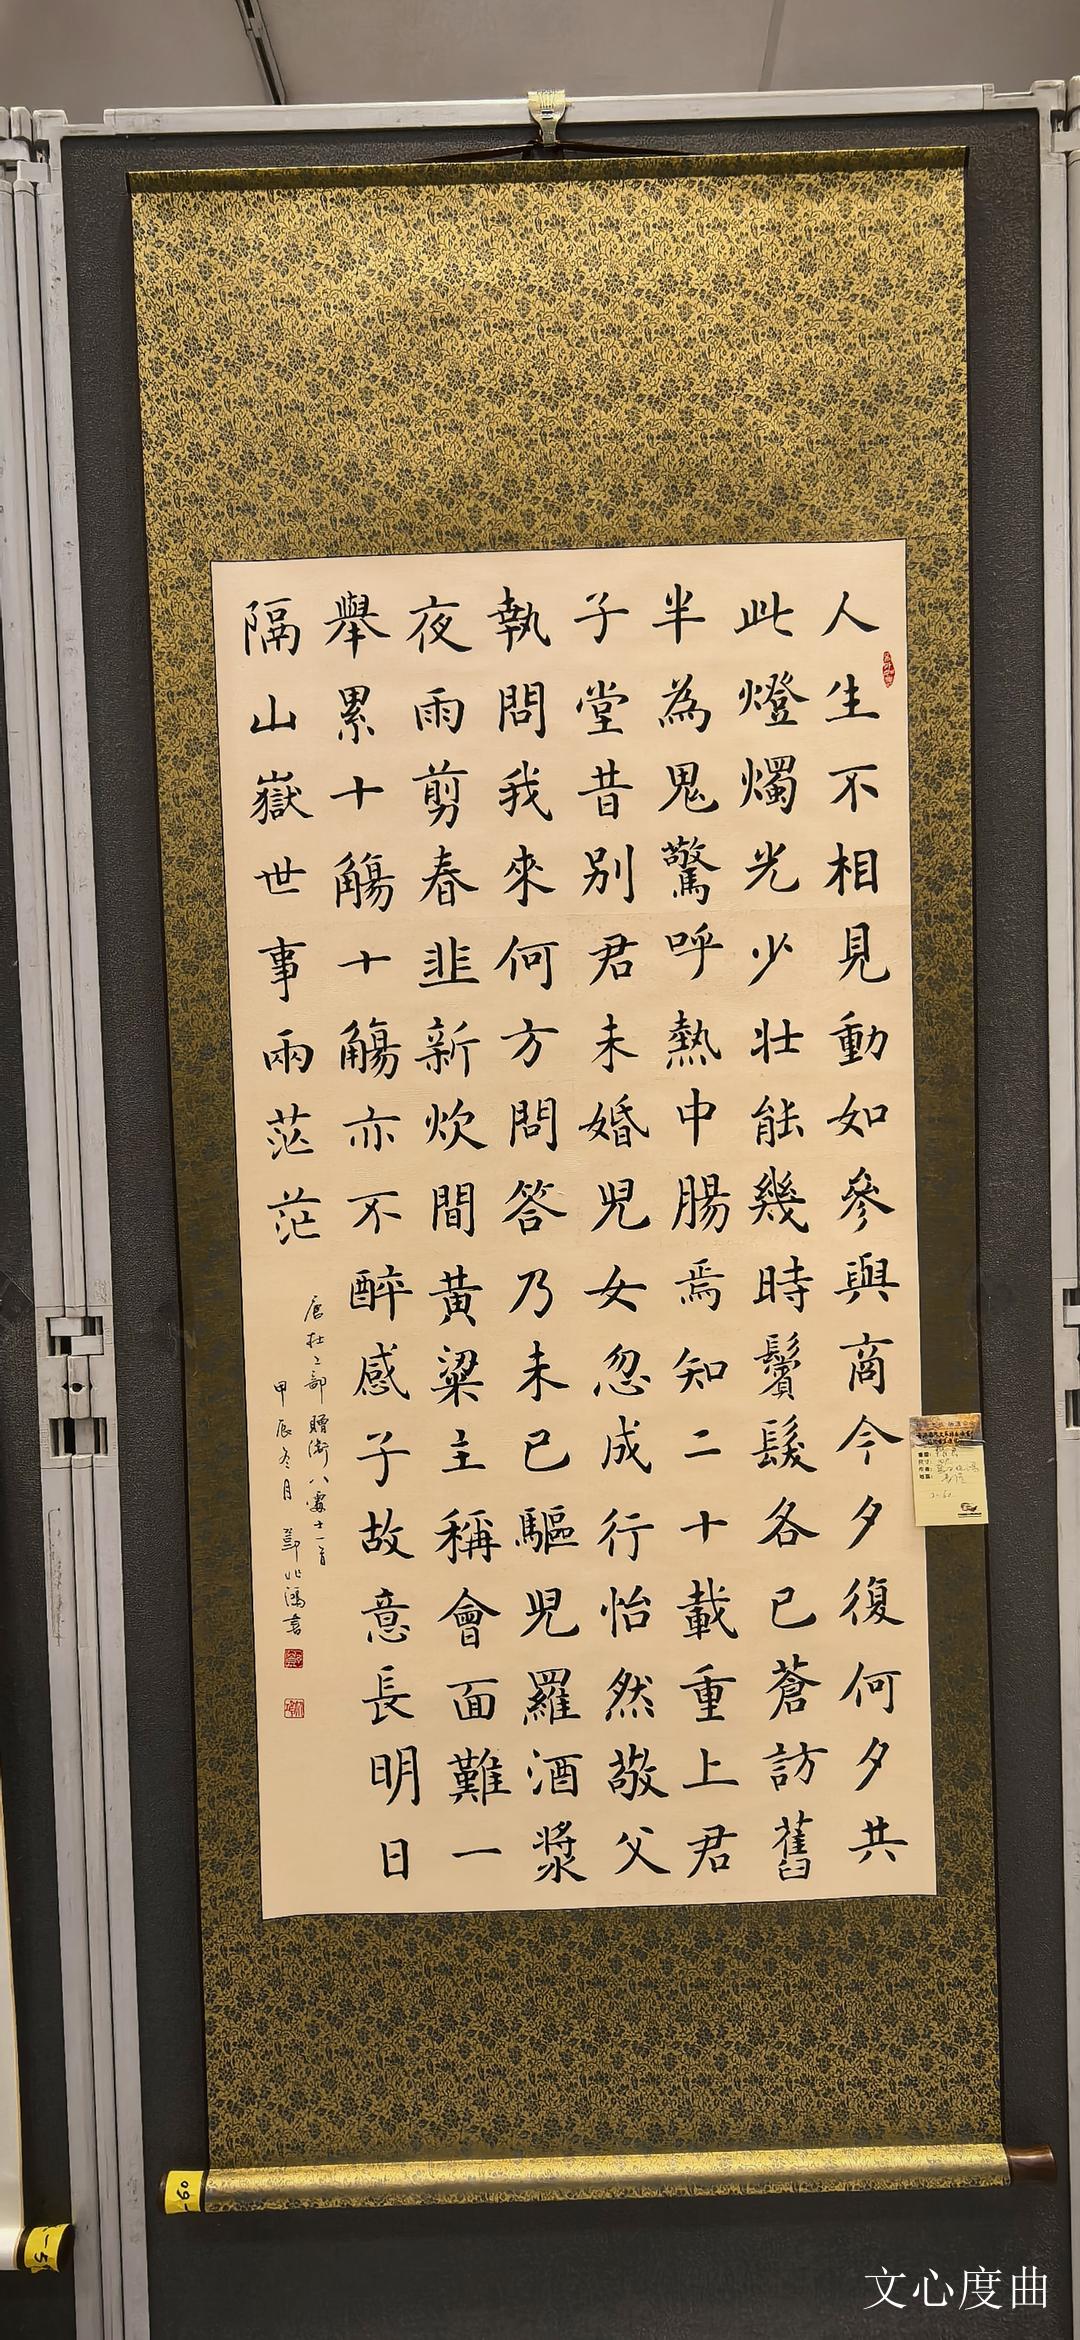 人生不相見動如參與商今夕復何夕共
此燈燭光少壯能幾時鬢髮各已蒼訪舊
半為鬼驚呼熱中腸焉知二十載重上君
子堂昔別君未婚兒女忽成行怡然敬父
執問我來何方問答乃未已驅兒羅酒漿
夜雨剪春韭新炊間黃粱主稱會面難一
舉累十觴十觴亦不醉感子故意長明日
隔山嶽世事兩茫茫
唐杜工部贈衛八處士一首
甲辰冬月
文心度曲